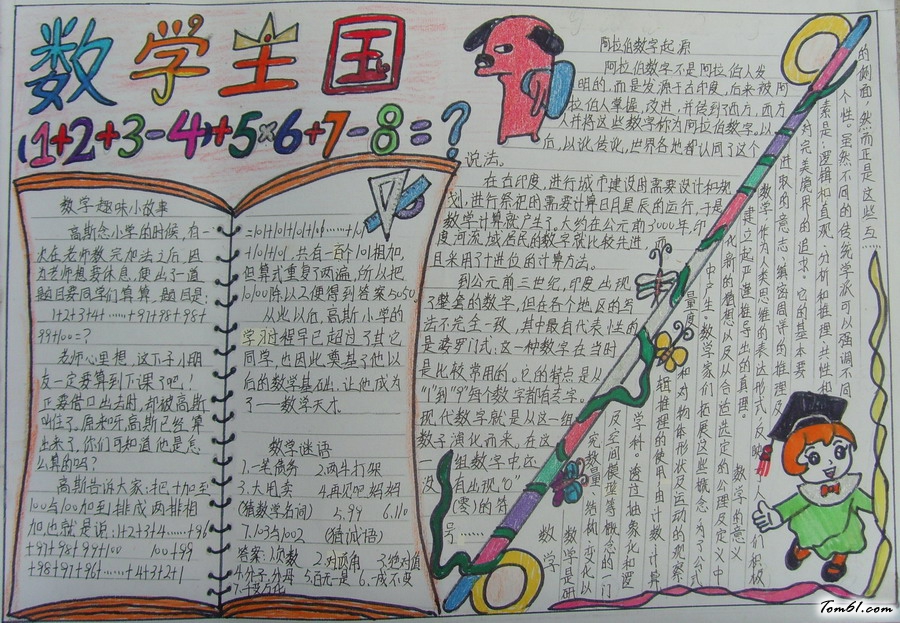 数学王国
(1+2+3-4)+5×6+7-8=?
数学趣味小故事
高斯念小学的时候,有一
次在老师教完加法之后,因
为老师想要休息,便出了一道
题目要同学们算算,题目是:
1+2+3+4……+97+98+99+100=?
老师心里想,这下子小朋
友一定要算到下课了吧!
正要借口出去时,却被高斯
叫住了,原来呀,高斯已经算
出来了,你们可知道他是怎
么算的吗?
高斯告诉大家:把1加至
100与100加到1排成两排相
加,也就是说:1+2+3+4……+96
+97+98+99+100 100+99
+98+97+96+……+4+3+2+1
=101+101+101+……+101
+101+101 共有一百个101相加,
但算式重复了两遍,所以把
10100除以2便得到答案5050
从此以后,高斯小学的
学习过程早已超过了其它
同学,也因此奠基了他以
后的数学基础,让他成为
了——数学天才
数学谜语
1.一笔债务 2.两牛打架
3.大甩卖 4.再见吧妈妈
(猜数学名词) 5.99 6.110
7.103与102 (猜成语)
答案:1.负数 2.对顶角 3.绝对值
4.分子.分母 5.百无一是 6.一成不变
阿拉伯数字起源
阿拉伯数字不是阿拉伯人发
明的,而是发源于古印度,后来被阿
拉伯人掌握,改进,并传到了西方,西方
人并将这些数字称为阿拉伯数字。以
后,以讹传讹,世界各地都认同了这个
说法。
在古印度,进行城市建设时需要设计和规
划,进行祭祀时需要计算日月星辰的运行,于是,
数学计算就产生了。大约在公元前3000年,印
度河流域居民的数字就比较先进,而
且采用了十进位的计算方法。
到公元前三世纪,印度出现
了整套的数字,但在各个地区的写
法不完全一致,其中最有代表性的
是婆罗门式:这一种数字在当时
是比较常用的。它的特点是从
"1"到"9"每个数都有专字。
现代数字就是从这一组
数字演化而来。在这
一组数字中,还
没有出现"0"
(零)的符
号……
数学
数学是研
究数量、结构、变化以
及空间模型等概念的一门
学科。透过抽象化和逻
辑推理的使用,由计数、计算
量度和对物体形状及运动的观察
中产生。数学家们拓展这些概念,为了公式
化新的猜想以及从合适选定的公理及定义中
建立起严谨推导出的真理。
数学的意义
数学,作为人类思维的表达形式,反映了人们积极
进取的意志、缜密周详的推理及
对完美境界的追求。它的基本要
素是:逻辑和直观、分析和推理、共性和
个性。虽然不同的传统学派可以强调不同
的侧面,然而正是这些互……
Tom61.com